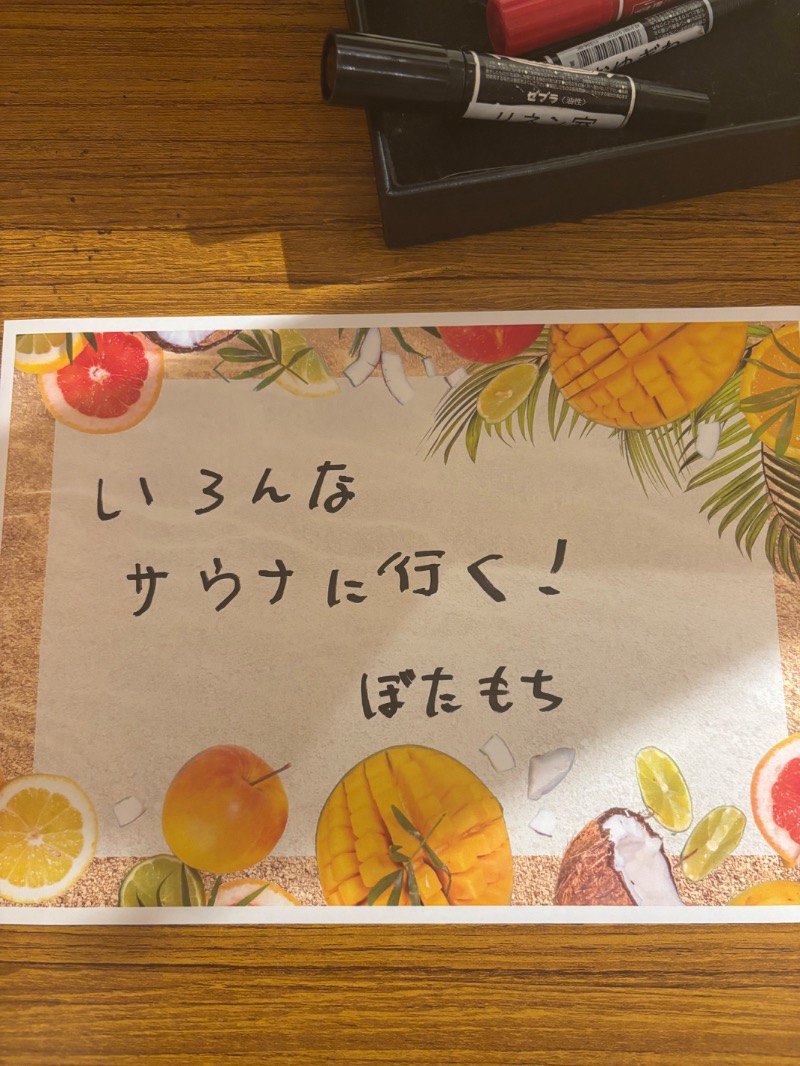 ゼブラ〈油性〉
リネン室
いろんな
サウナに行く!
ぼたもち